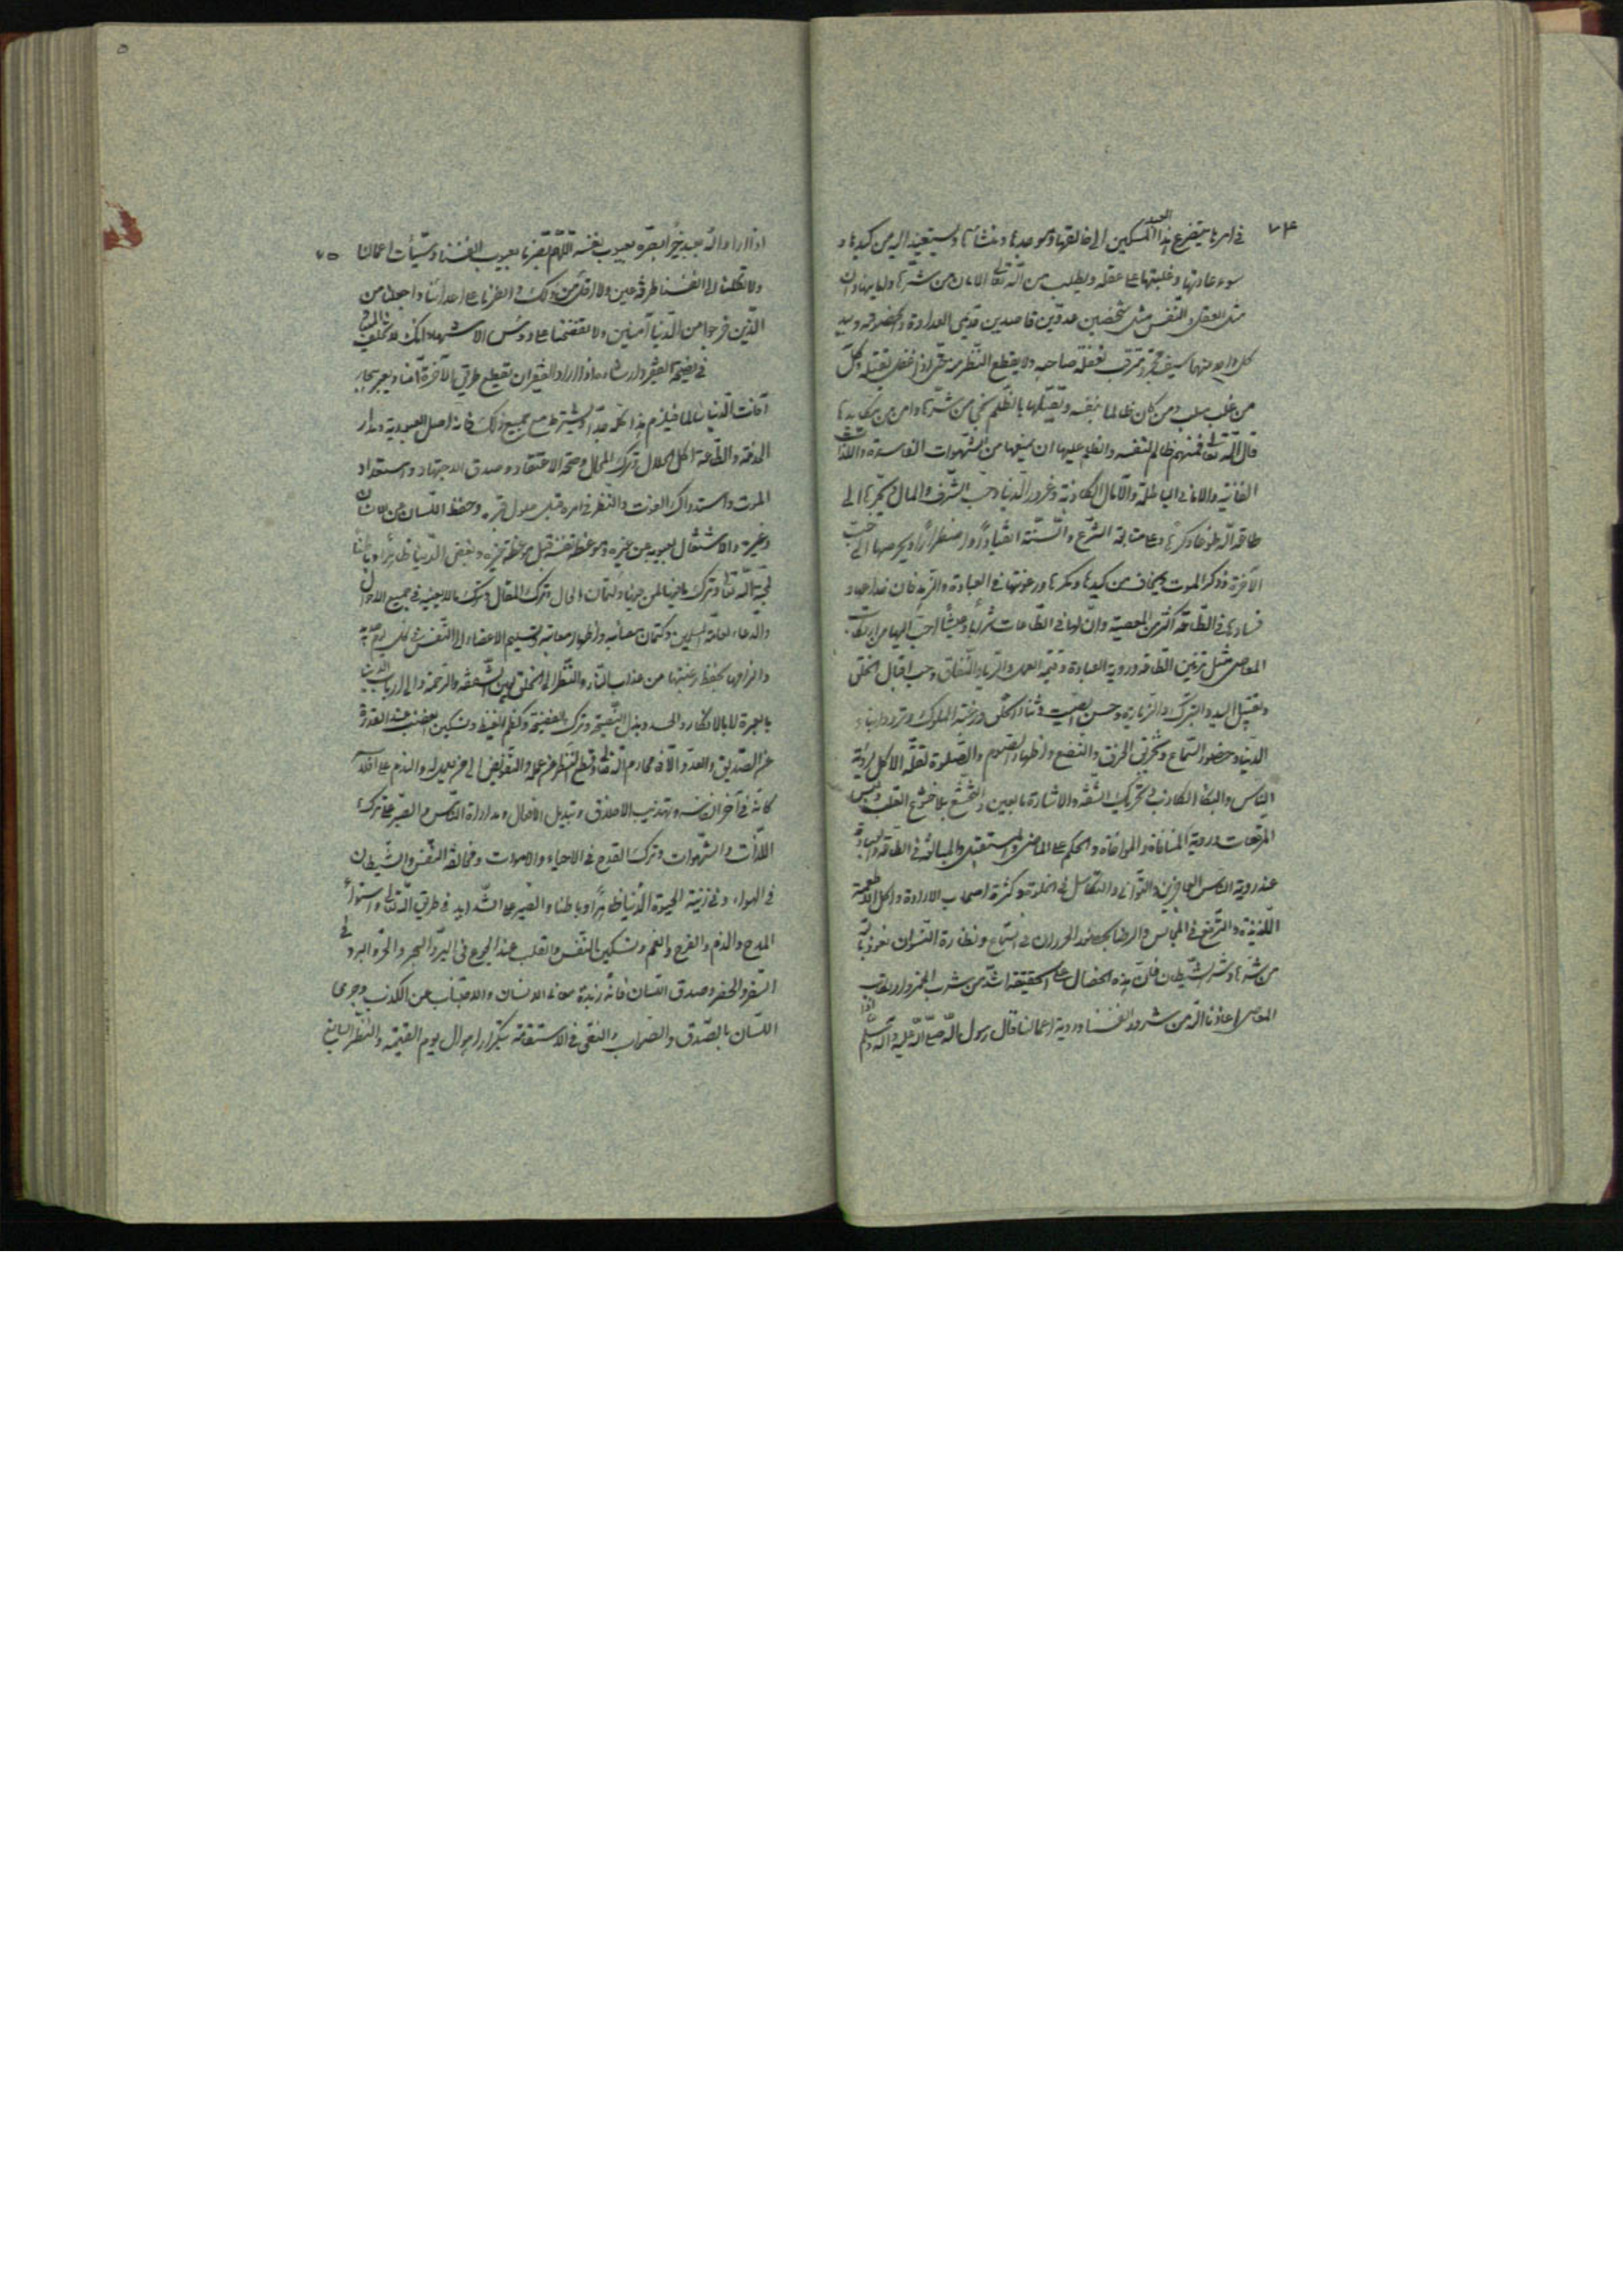 ٧٤
في امرها يتضرع هذا العبد المسكين الى خالقها وموجدها ومنشأها ويستعيذ اليه من كيدها و
سوء عادتها وغلبتها على عقله ويطلب من الله تعالى الامان من شرها
مثل العقل والنفس مثل شخصين عدوين قاصدين قديمى العداوة والخصومة وبيد
كل واحد منهما سيف يترقب غفلة صاحبه ولا يقطع النظر منه حتى اذا غفل يقتله وكل
من غلب سلب ومن كان ظالما بنفسه وتقبلها بالظلم نجى من شرها وامن من مكايدها
قال الله تعالى فمنهم ظالم لنفسه والظلم عليها ان يمنعها من الشهوات الفاسدة واللذات
الفانية والامانى الباطلة والآمال الكاذبة وغرور الدنيا وحب الشرف والمال ويجرها الى
طاعة الله طوعا وكرها وعلى متابعة الشرع والسنة انقيادا واضطرارا ويحرصها الى حب
الآخرة وذكر الموت ويخاف من كيدها ومكرها ورعونتها في العبادة والزهد فان خداعها و
فسادها في الطاعة اكثر من المعصية وان لها في الطاعات شربا وعيشا احب اليها من ارتكاب
المعاصي مثل تزيين الطاعة وروية العبادة وقيمة العمل والريا والنفاق وحب اقبال الخلق
وتقبيل اليد والتبرك والزيارة وحسن الصيت وثناء الخلق ورغبة الملوك وتردد ابناء
الدنيا وحضور السماع وتخريق الخرق والتضع واظهار الصوم والصلوة لقلة الاكل لرؤية
الناس والبكاء الكاذب وتحريك الشفة والاشارة بالعين والتخشع بلا خشوع القلب ولبس
المرقعات وروية المنامات والحكم على الماضى والمستقبل والمبالغة في الطاعة والعبادة
عند روية الناس العاجزين والتواني والتكاسل في الخلوة وكثرة اصحاب الارادة واكل الاطعمة
اللذيذة والترفع في المجالس والرضا في السماع ونظارة النسوان نعوذ بالله
من شرها وشر الشيطان فلعل هذه الخصال على الحقيقة اشد من شرب الخمر وارتكاب
المعاصي اعاذنا الله من شرور انفسنا وروية اعمالنا قال رسول الله صلى الله عليه وآله وسلم
اذا
٧٥
اذا اراد الله بعبد خيرا بصره بعيوب نفسه اللهم بصرنا بعيوب انفسنا وسيئات اعمالنا
ولا تكلنا الى انفسنا طرفة عين ولا اقل من ذلك وانصرنا على اعدائنا واجعلنا من
الذين خرجوا من الدنيا آمنين ولا تفضحنا على رؤس الاشهاد انك لا تخلف الميعاد
في نصيحة الفقير وارشاده اذا اراد الفقير ان يقطع طريق الآخرة آمنا ويعبر بحار
آفات الدنيا سالما فيلزم هذا كله جدا ويشترط مع جميع ذلك فانه اصل العبودية ومدار
الخدمة والطاعة اكل الحلال وترك المحال وصحة الاعتقاد وصدق الاجتهاد واستعداد
الموت واستدراك الفوت والنظر في امره قبل حلول قبره وحفظ اللسان من
وغيره والاشتغال بعيوبه عن غيره وموعظة نفسه قبل موعظة غيره وبغض الدنيا ظاهرا وباطنا
لمحبة الله تعالى وترك الدنيا لمن يريدها وكتمان الحال وترك المقال وترك ما لا يعنيه في جميع الاحوال
والدعاء لعامة المسلمين وكتمان مصائبه واظهار معايبه وتسليم الاعضاء الى النفس في كل يوم صحيحة
والزامها بحفظ رعيتها من عذاب النار والنظر الى الخلق بعين الشفقة والرحمة والى ارباب الدنيا
بالعبرة لا بالانكار والحسد وبذل النصيحة وترك الفضيحة وكظم الغيظ وتسكين الغضب عند القدرة
عن الصديق والعدو الا في محارم الله تعالى وقطع النظر عن عمله والتفويض الى من بيده والندم على افعاله
كانه في آخر انفاسه وتهذيب الاخلاق وتبديل الافعال ومداراة الناس والصبر على ترك
اللذات والشهوات وترك القدح في الاحياء والاموات ومخالفة النفس والشيطان
في الهواء وفى زينة الحيوة الدنيا ظاهرا وباطنا والصبر على الشدايد في طريق الله تعالى واستواء
المدح والذم والفرح والغم وتسكين النفس والقلب عند الجوع في البر والبحر والحر والبرد في
السفر والحضر وصدق اللسان فانه زبدة معانى الانسان والاجتناب عن الكذب وجرى
اللسان بالصدق والصواب والتقى في الاستقامة بتكرار اهوال يوم القيمة والنظر البالغ